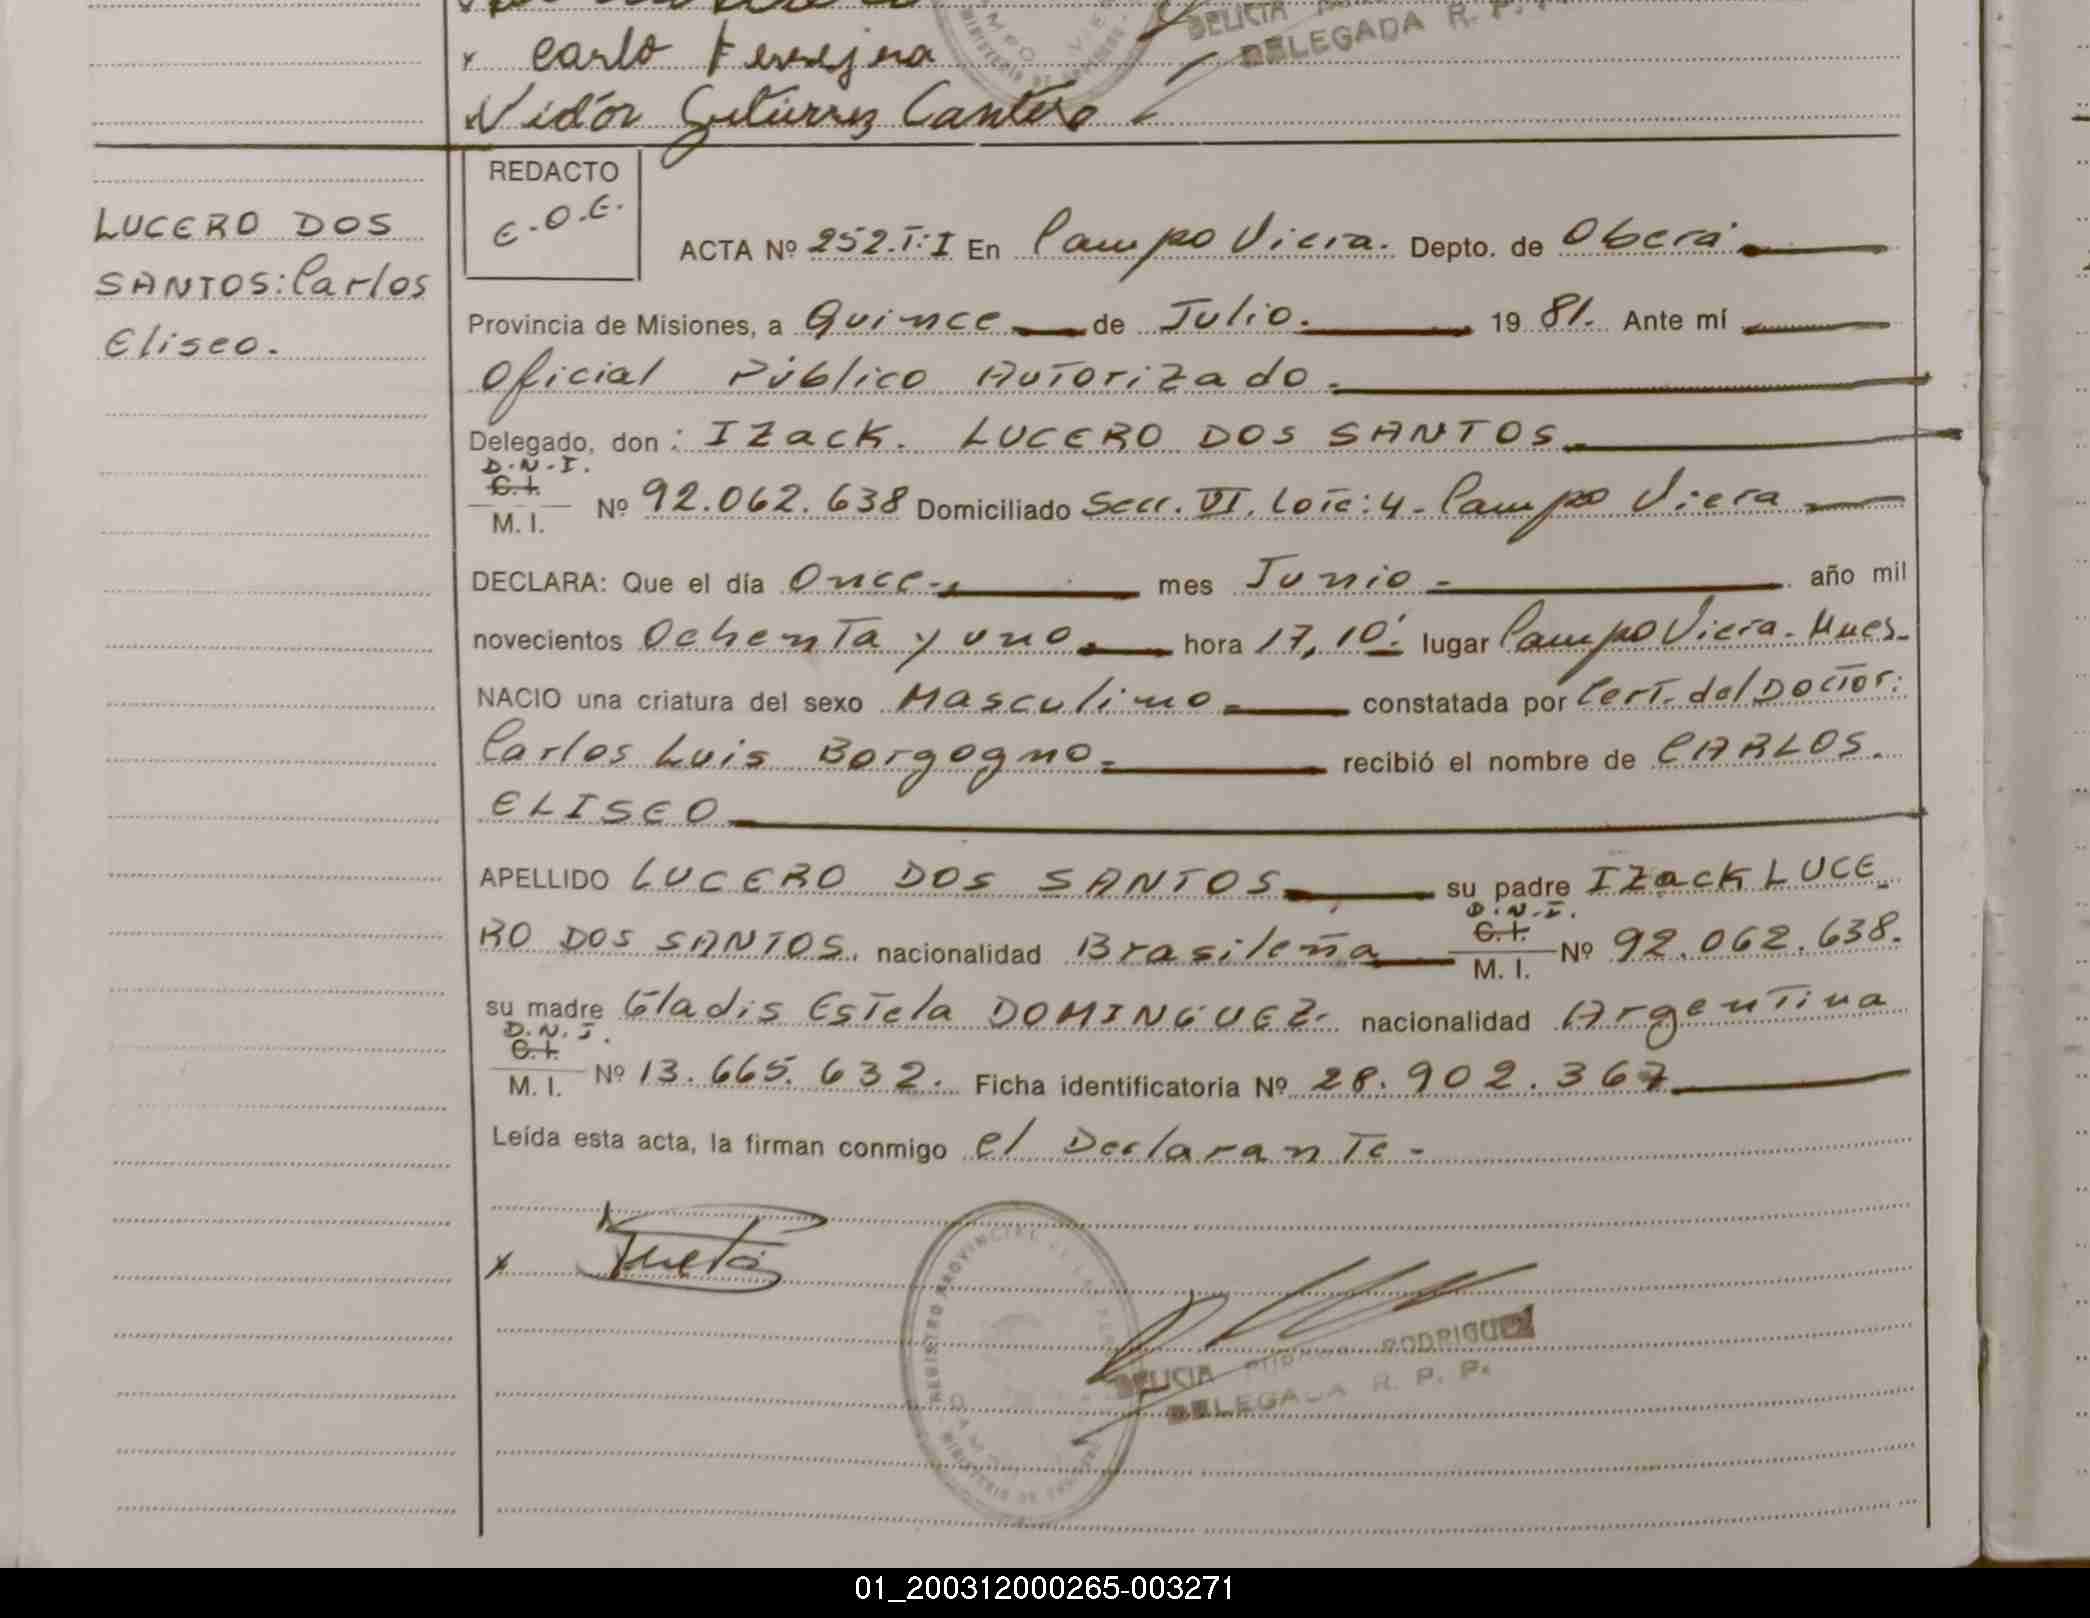 Carlo Ferreyra
Vidór Gutiérrez Cantero
DELICIA
DELEGADA R. P. P.
REDACTO
E.O.E.
LUCERO DOS
SANTOS: Carlos
Eliseo.
ACTA Nº 252.T:I En Campo Viera. Depto. de Oberá
Provincia de Misiones, a Quince de Julio. 19 81. Ante mí
Oficial Público Autorizado
Delegado, don: IZack. LUCERO DOS SANTOS
D.N.I.
C.I.
M. I. Nº 92.062.638 Domiciliado Secc. VI. Lote: 4 - Campo Viera
DECLARA: Que el día Once mes Junio año mil
novecientos Ochenta y uno hora 17,10' lugar Campo Viera. Mnes.
NACIO una criatura del sexo Masculino constatada por Cert. del Doctor:
Carlos Luis Borgogno recibió el nombre de CARLOS
ELISEO
APELLIDO LUCERO DOS SANTOS su padre IZack LUCE
RO DOS SANTOS, nacionalidad Brasileña D.N.I. C.I. M. I. Nº 92.062.638.
su madre Gladis Estela DOMINGUEZ nacionalidad Argentina
D.N.I.
C.I.
M. I. Nº 13.665.632. Ficha identificatoria Nº 28.902.367
Leída esta acta, la firman conmigo el Declarante -
REGISTRO PROVINCIAL
DELICIA RODRIGUEZ
DELEGADA R. P. P.
01_200312000265-003271